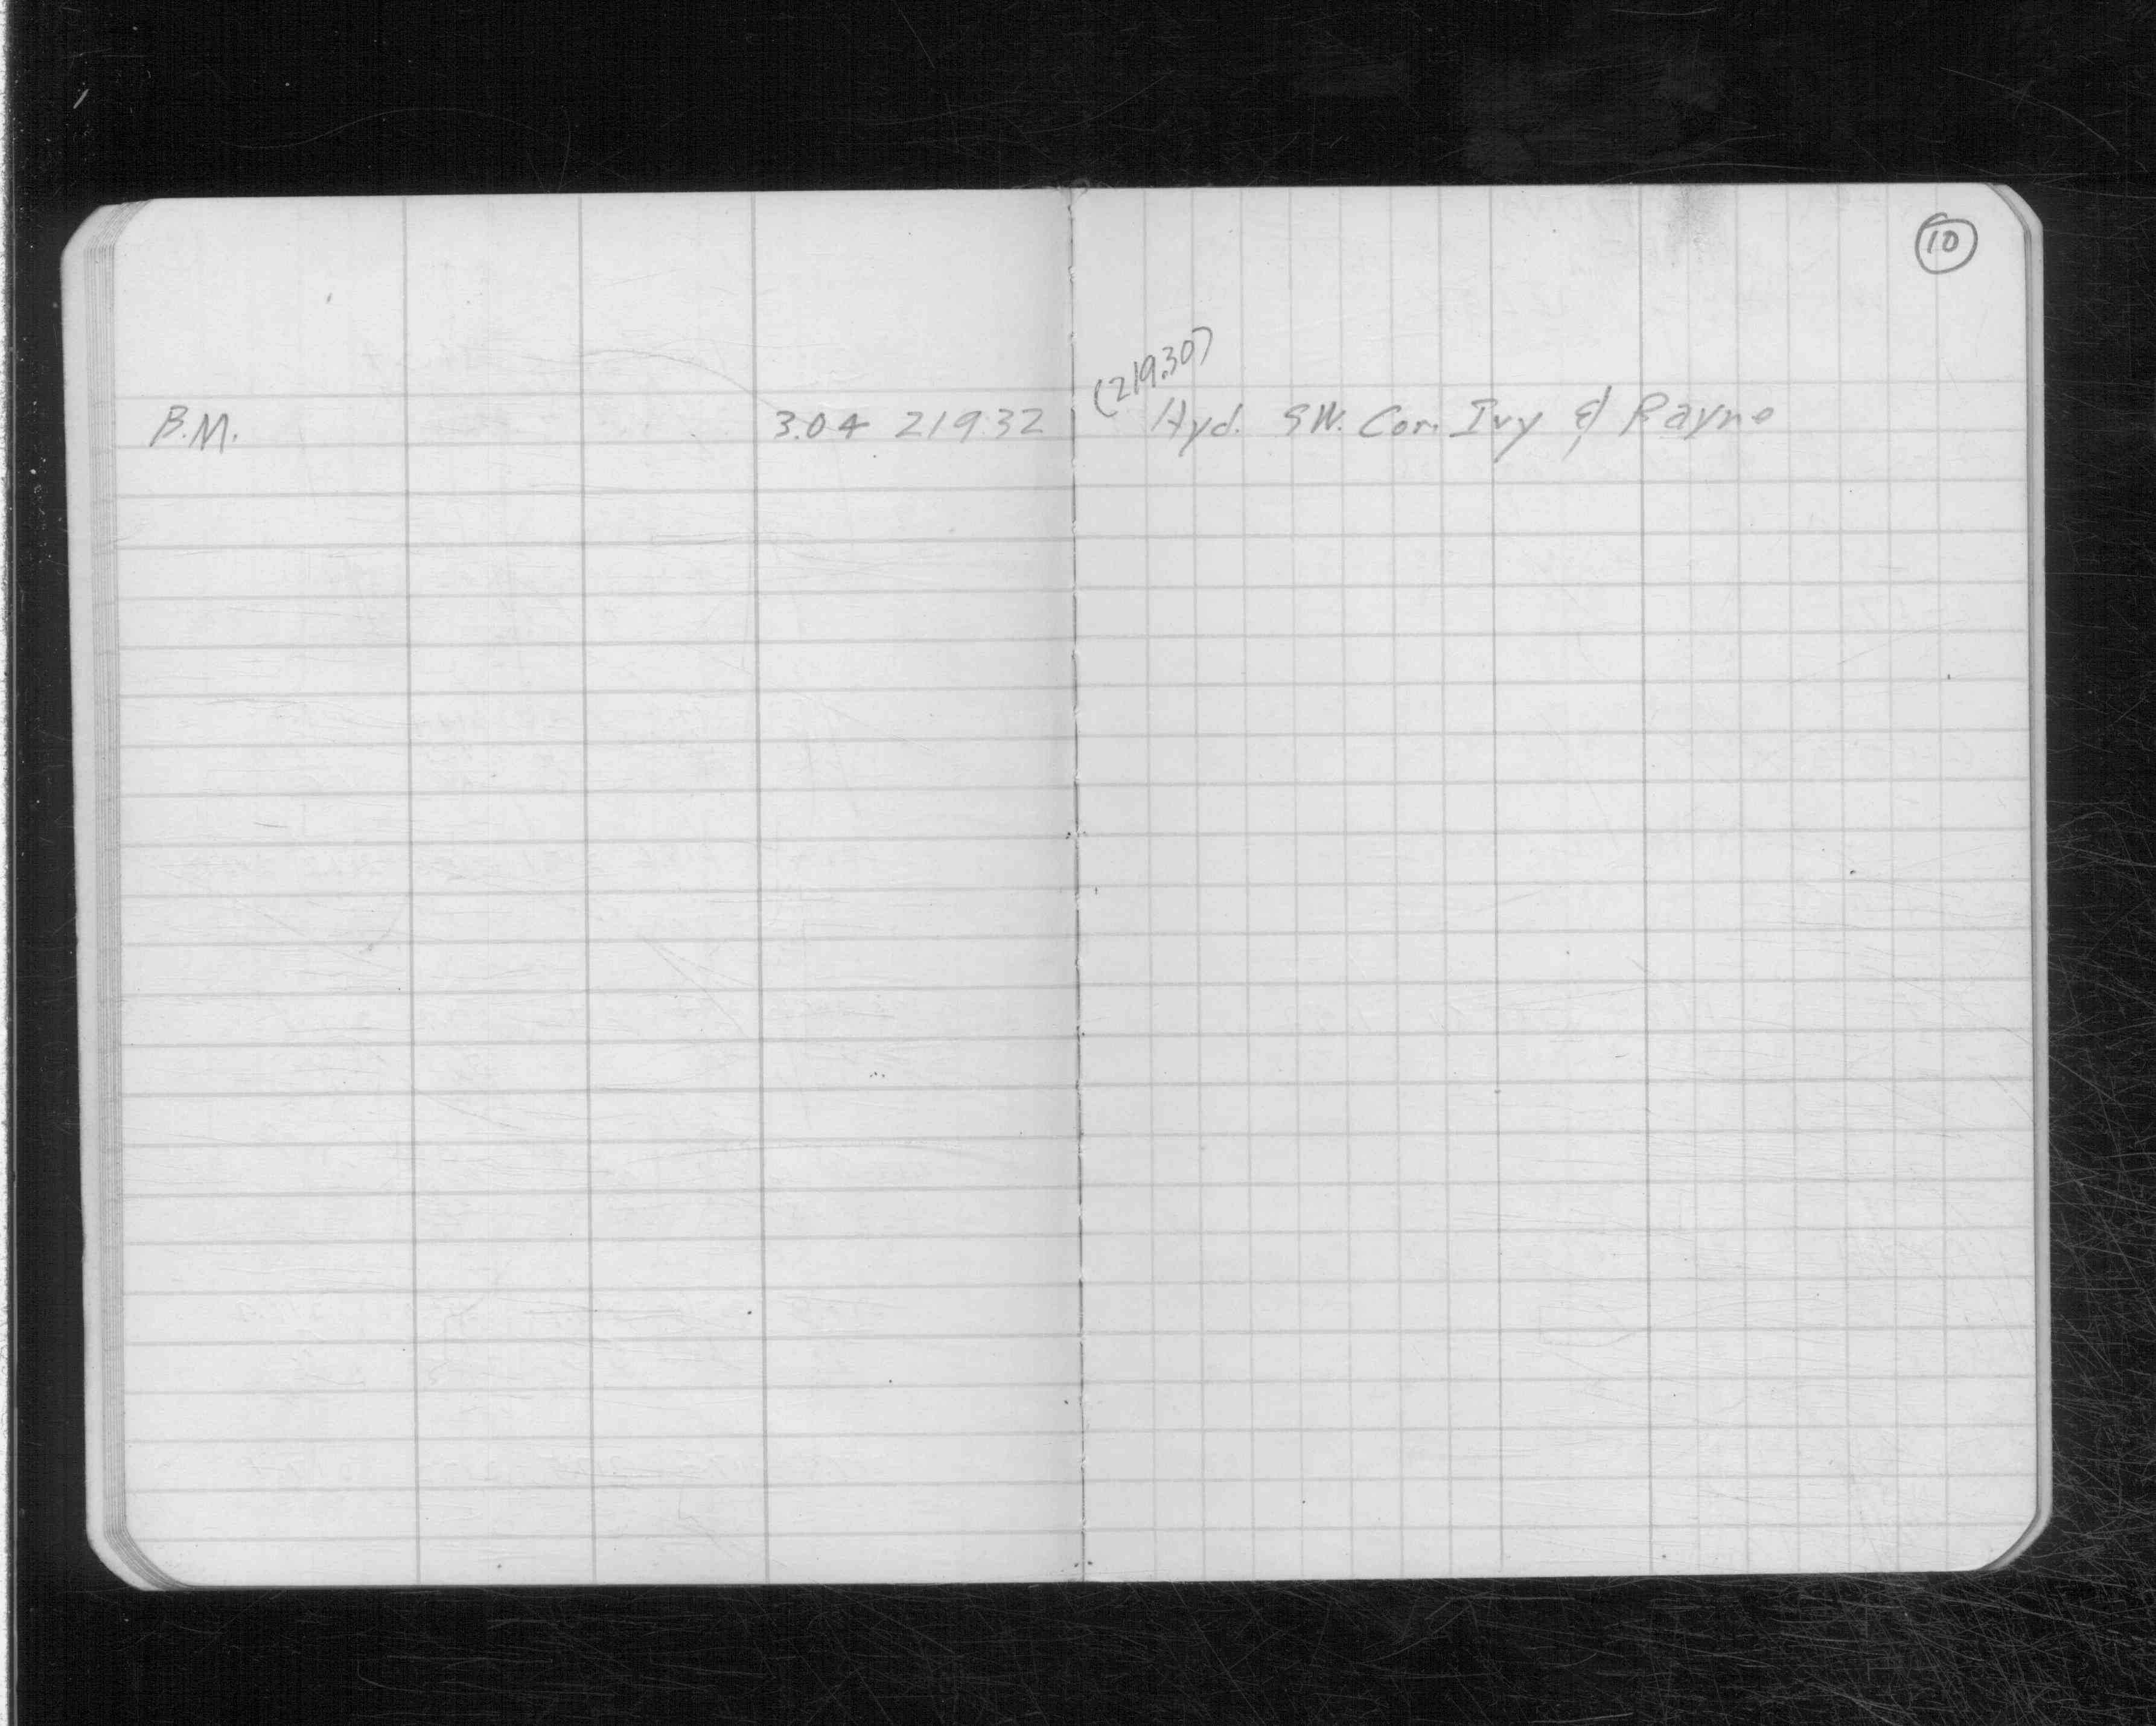 10
(219.30)
B.M. 3.04 219.32 Hyd. SW. Cor. Ivy & Rayno